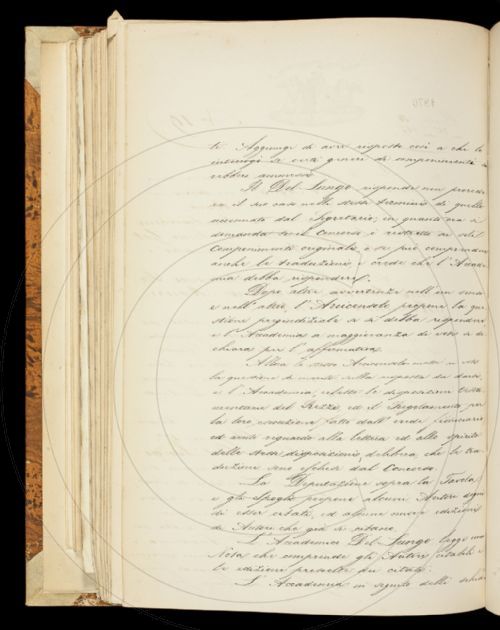 te. Aggiunge di aver risposto così a che lo
interrogò se certi generi di componimenti
debbano ammettersi.
Il Del Lungo risponde non proceder
si il suo caso nelli stessi termini di quello
accennato dal Segretario; in quanto ora si
domanda se il Concorso è ristretto ai soli
Componimenti originali, o se può comprendere
anche le traduzioni e crede che l'Accade
mia debba rispondere.
Dopo altre avvertenze nell'un senso
e nell'altro, l'Arciconsolo propone la que
stione pregiudiciale se si debba rispondere
e l'Accademia a maggioranza di voti si di
chiara per l'affermativa.
Allora lo stesso Arciconsolo mette ai voti
la questione di merito sulla risposta da darsi,
e l'Accademia, riletto le disposizioni testa
mentarie del Rezzi, ed il Regolamento per
la loro esecuzione fatto dall'erede fiduciario
ed avuto riguardo alla lettera ed allo spirito
delle stesse disposizioni, delibera che le tra
duzioni sono escluse dal Concorso.
La Deputazione sopra la Tavola
e gli Spogli propone alcuni Autori degni
di esser citati, ed alcune nuove edizioni
di Autori che già si citano.
L'Accademico Del Lungo legge una
Nota che comprende gli Autori citabili e
le edizioni prescelte da citare.
L'Accademia in seguito delli schia